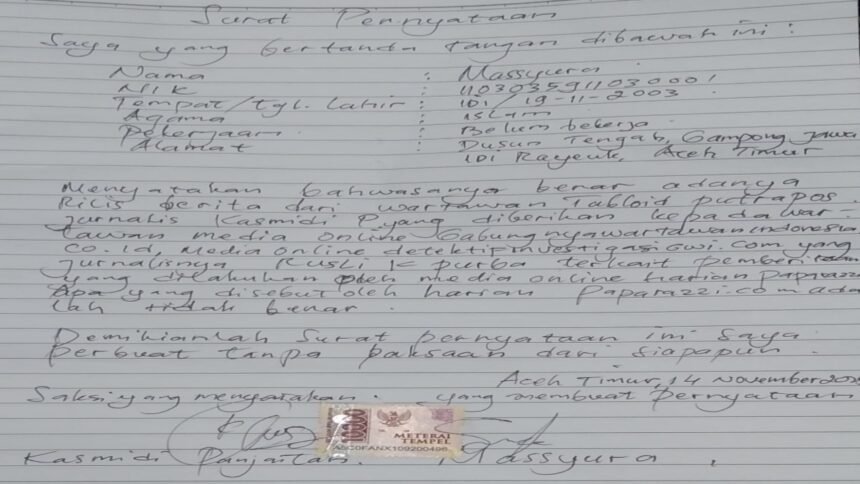 Surat Pernyataan
Saya yang bertanda tangan dibawah ini :
Nama : Massyura
NIK : 1103035911030001
Tempat/tgl. Lahir : IDI / 19-11-2003
Agama : Islam
Pekerjaan : Belum bekerja
Alamat : Dusun Tengah, Gampong Jawa
IDI Rayeuk, Aceh Timur
Menyatakan bahwasanya benar adanya
Rilis berita dari wartawan Tabloid putrapos.
jurnalis Kasmidi P yang diberikan kepada war-
tawan media online Gabungnyawartawanindonesia
co.id, Media online detektifinvestigasigwi.com yang
jurnalisnya Rusli K purba terkait pemberitaan
yang dilakukan oleh media online harian Paparazzi
Apa yang disebut oleh harian Paparazzi.com ada
lah tidak benar.
Demikianlah Surat pernyataan ini saya
perbuat tanpa paksaan dari siapapun.
Aceh Timur, 14 November
Saksi yang mengatakan. yang membuat Pernyataan
10000
METERAI
TEMPEL
FANX109200496
Kasmidi Panjaitan. Massyura.